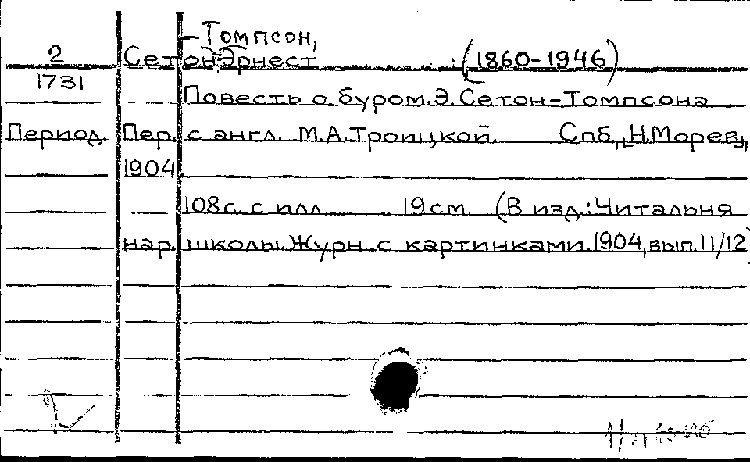 -Томпсон,
2 Сетон Эрнест (1860-1946)
1731
Повесть о буром. Э. Сетон-Томпсона
Период. Пер. с англ. М.А.Троицкой Спб, Н.Морев,
1904.
108с. с илл. 19см (В изд.: Читальня
нар. школы. Журн. с картинками. 1904, вып. 11/12)